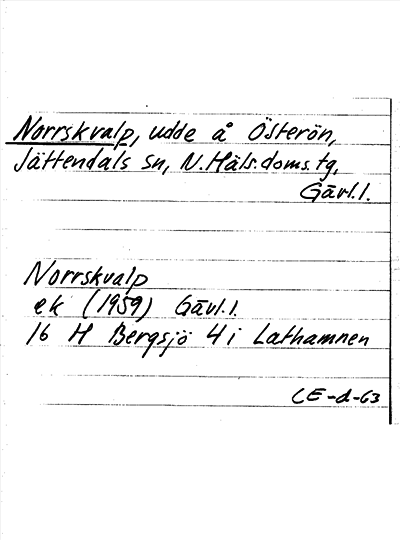 Norrskvalp, udde å Österön,
Jättendals sn, N.Häls.doms.tg.
Gävl.l.
Norrskvalp
ek (1959) Gävl.l.
16 H Bergsjö 4 i Lathamnen
CE-d-63